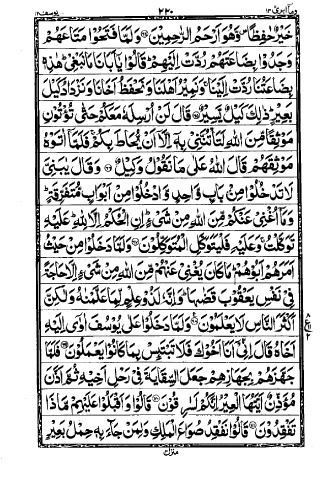 وما ابرئ ١٣ ٢٢٠ يوسف ١٢
خَيْرٌ حٰفِظًا ۪ وَّهُوَ اَرْحَمُ الرّٰحِمِيْنَ ۝ وَلَمَّا فَتَحُوْا مَتَاعَهُمْ
وَجَدُوْا بِضَاعَتَهُمْ رُدَّتْ اِلَيْهِمْ ؕ قَالُوْا يٰۤاَبَانَا مَا نَبْغِيْ ؕ هٰذِهٖ
بِضَاعَتُنَا رُدَّتْ اِلَيْنَا ۚ وَنَمِيْرُ اَهْلَنَا وَنَحْفَظُ اَخَانَا وَنَزْدَادُ كَيْلَ
بَعِيْرٍ ؕ ذٰلِكَ كَيْلٌ يَّسِيْرٌ ۝ قَالَ لَنْ اُرْسِلَهٗ مَعَكُمْ حَتّٰى تُؤْتُوْنِ
مَوْثِقًا مِّنَ اللّٰهِ لَتَاْتُنَّنِيْ بِهٖۤ اِلَّاۤ اَنْ يُّحَاطَ بِكُمْ ۚ فَلَمَّاۤ اٰتَوْهُ
مَوْثِقَهُمْ قَالَ اللّٰهُ عَلٰى مَا نَقُوْلُ وَكِيْلٌ ۝ وَقَالَ يٰبَنِيَّ
لَا تَدْخُلُوْا مِنْۢ بَابٍ وَّاحِدٍ وَّادْخُلُوْا مِنْ اَبْوَابٍ مُّتَفَرِّقَةٍ ؕ
وَمَاۤ اُغْنِيْ عَنْكُمْ مِّنَ اللّٰهِ مِنْ شَيْءٍ ؕ اِنِ الْحُكْمُ اِلَّا لِلّٰهِ ؕ عَلَيْهِ
تَوَكَّلْتُ ۚ وَعَلَيْهِ فَلْيَتَوَكَّلِ الْمُتَوَكِّلُوْنَ ۝ وَلَمَّا دَخَلُوْا مِنْ حَيْثُ
اَمَرَهُمْ اَبُوْهُمْ ؕ مَا كَانَ يُغْنِيْ عَنْهُمْ مِّنَ اللّٰهِ مِنْ شَيْءٍ اِلَّا حَاجَةً
فِيْ نَفْسِ يَعْقُوْبَ قَضٰىهَا ؕ وَاِنَّهٗ لَذُوْ عِلْمٍ لِّمَا عَلَّمْنٰهُ وَلٰكِنَّ
اَكْثَرَ النَّاسِ لَا يَعْلَمُوْنَ ۝ وَلَمَّا دَخَلُوْا عَلٰى يُوْسُفَ اٰوٰۤى اِلَيْهِ
اَخَاهُ قَالَ اِنِّيْۤ اَنَا اَخُوْكَ فَلَا تَبْتَئِسْ بِمَا كَانُوْا يَعْمَلُوْنَ ۝ فَلَمَّا
جَهَّزَهُمْ بِجَهَازِهِمْ جَعَلَ السِّقَايَةَ فِيْ رَحْلِ اَخِيْهِ ثُمَّ اَذَّنَ
مُؤَذِّنٌ اَيَّتُهَا الْعِيْرُ اِنَّكُمْ لَسٰرِقُوْنَ ۝ قَالُوْا وَاَقْبَلُوْا عَلَيْهِمْ مَّاذَا
تَفْقِدُوْنَ ۝ قَالُوْا نَفْقِدُ صُوَاعَ الْمَلِكِ وَلِمَنْ جَآءَ بِهٖ حِمْلُ بَعِيْرٍ
منزل